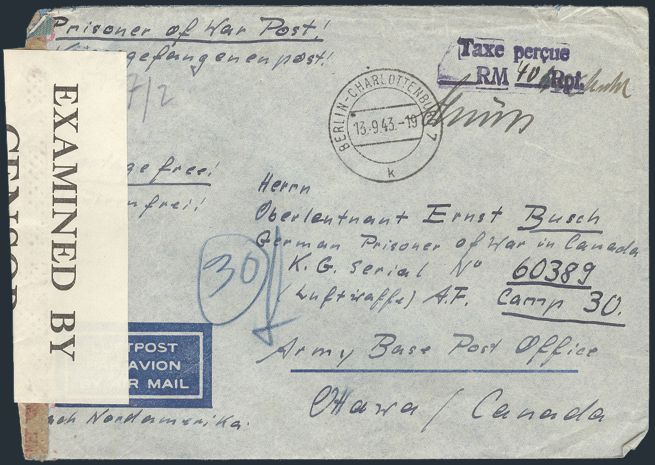 Prisoner of War Post!
Kriegsgefangenenpost!
7/2
Taxe perçue
RM '40 Rpf.
BERLIN-CHARLOTTENBURG 7
13.-9.43.-19
k
EXAMINED BY
CENSOR
gefrei!
nfrei!
Herrn
Oberleutnant Ernst Busch
German Prisoner of War in Canada
K. G. Serial No 60389
(Luftwaffe) A.F. Camp 30.
30
Army Base Post Office
Ottawa / Canada
TPOST
AVION
BY AIR MAIL
nach Nordamerika.